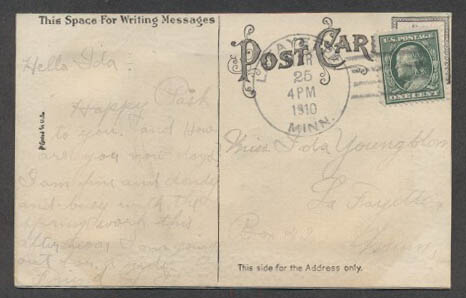 This Space For Writing Messages
Hello Ida.
Happy Pask
to you. and How
are you now days
I am fine and dandy
and busy with the
spring work this
afternoon I am going
out for a ride
POST CARD
25
4 PM
1910
MINN.
U.S. POSTAGE
ONE CENT
Miss Ida Youngblom
La Fayette
Box
Minn.
This side for the Address only.